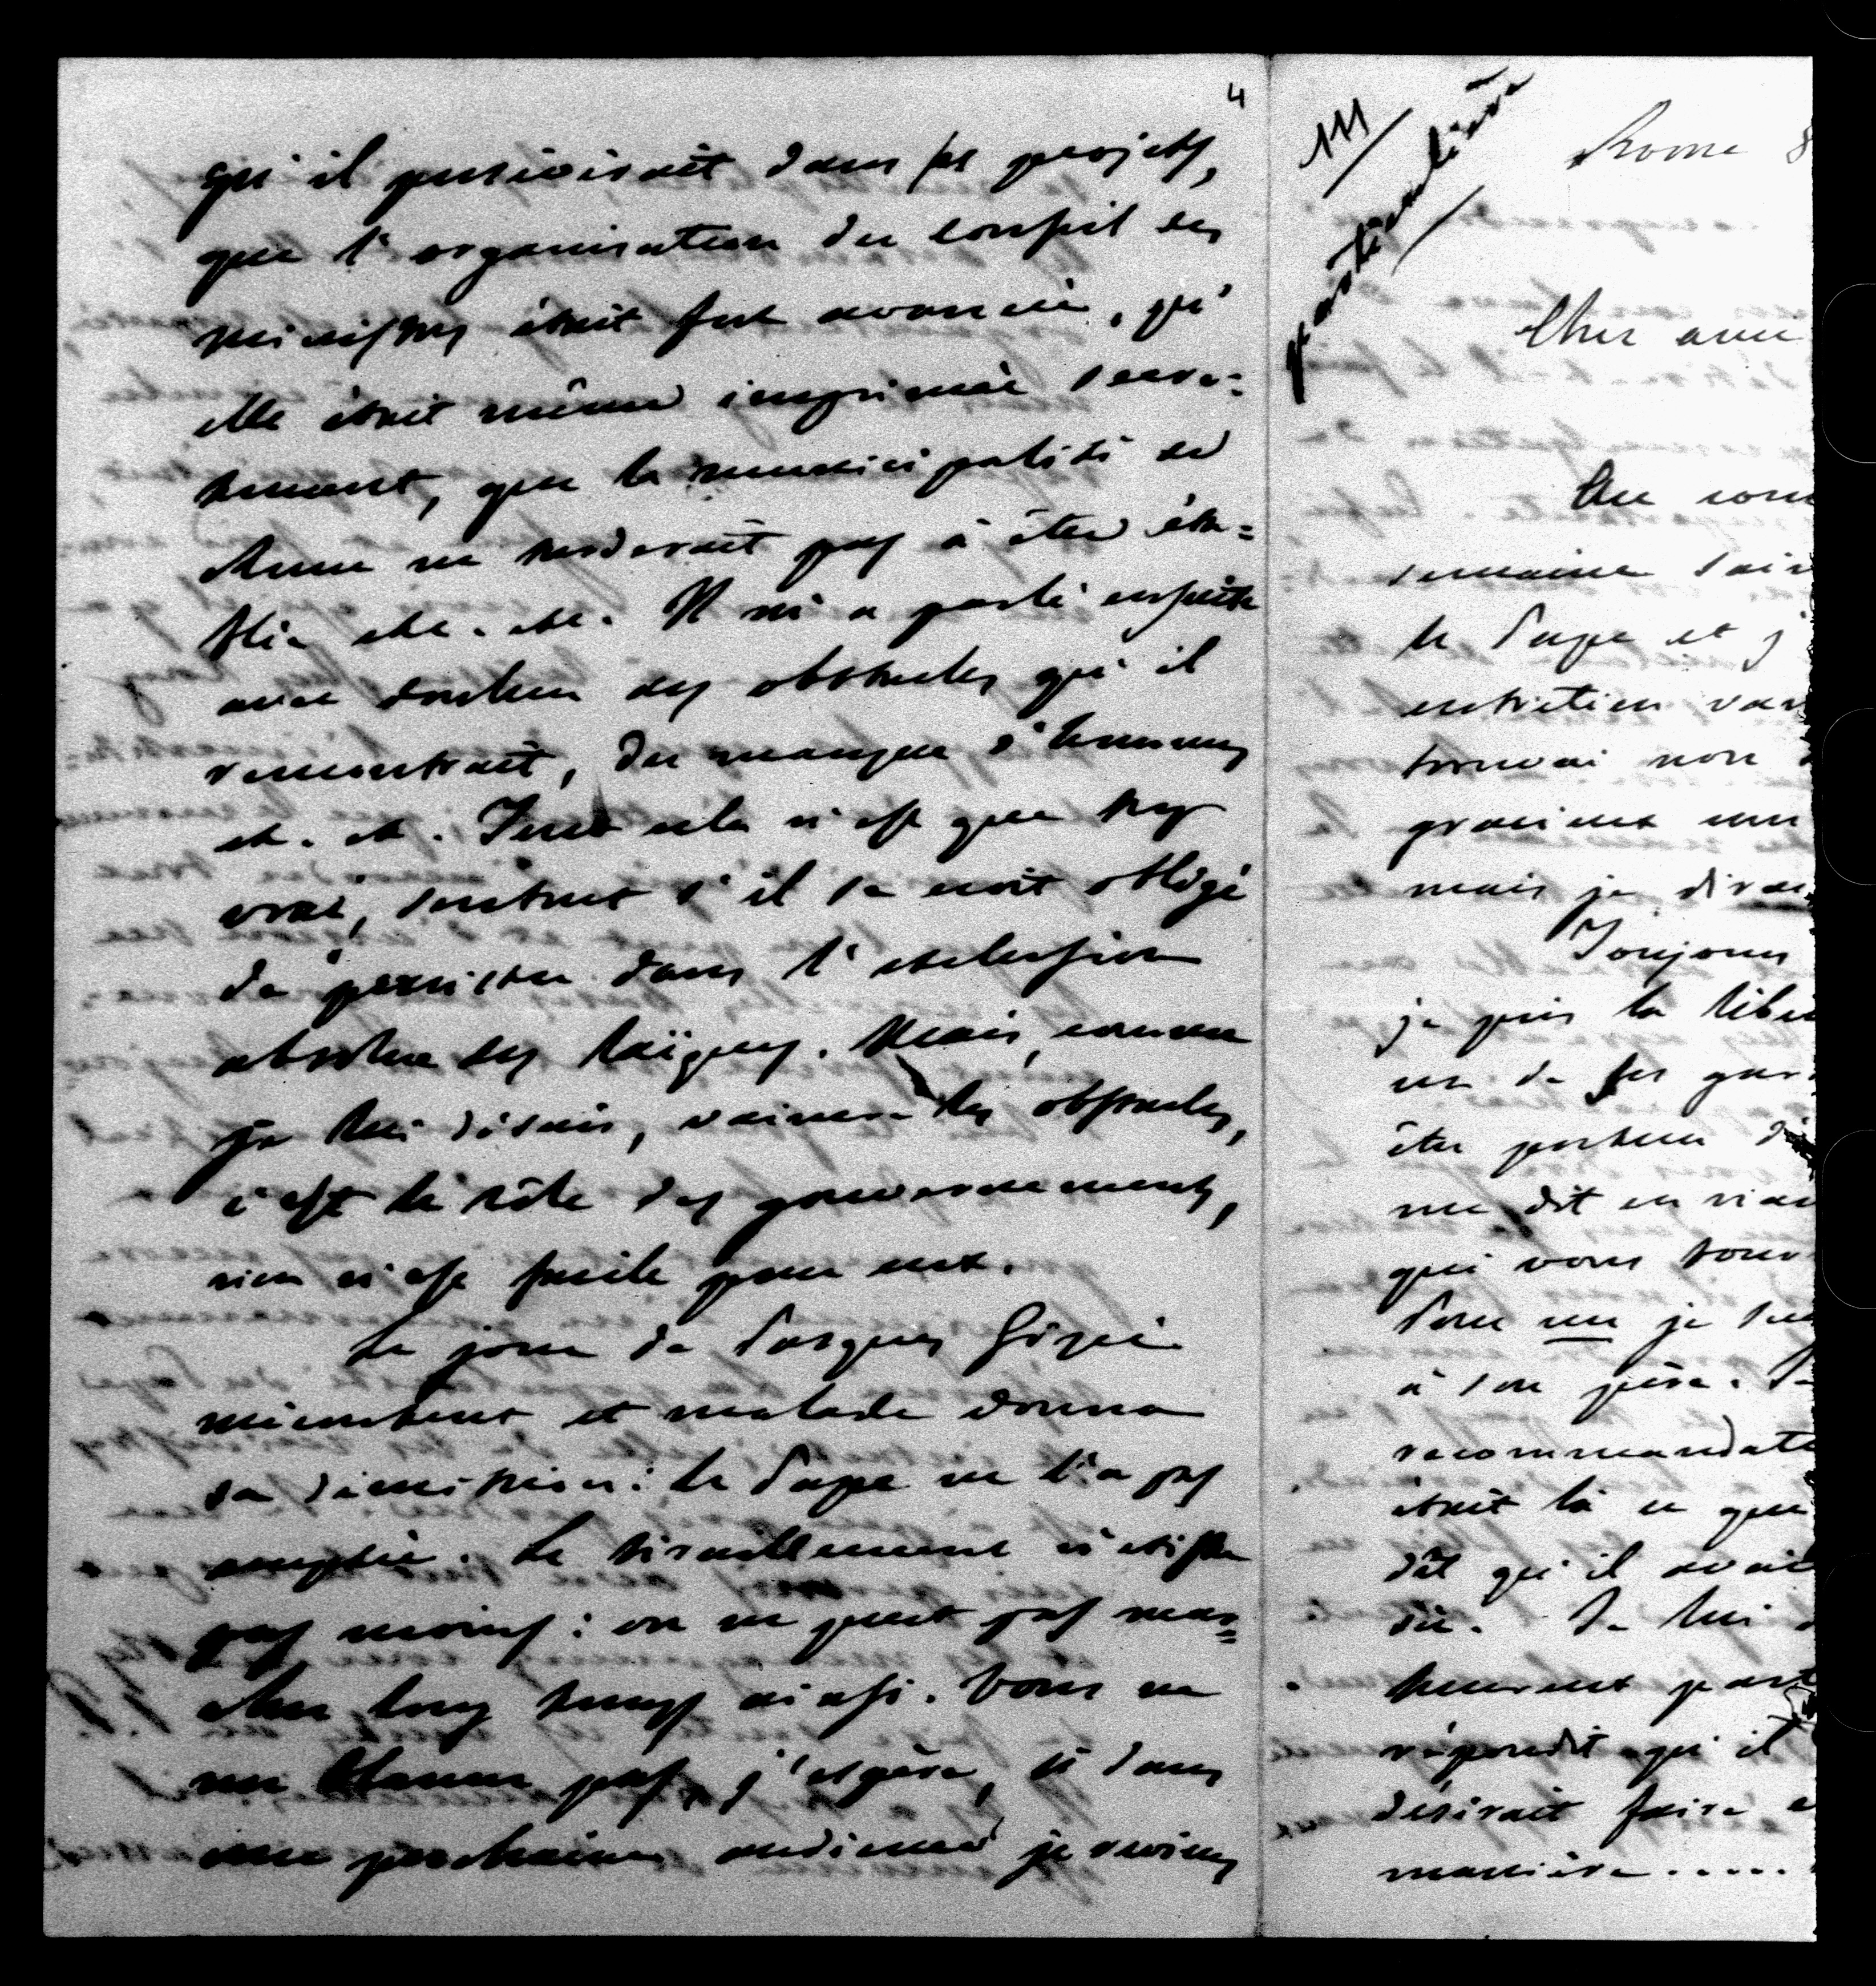 4
qu'il persévérait dans ses projets,
que l'organisation du conseil des
ministres était fort avancée, qu'
elle était même imprimée secrè=
tement, que la municipalité de
Rome ne tarderait pas à être éta=
blie etc. etc. Il m'a parlé ensuite
avec douleur des obstacles qu'il
rencontrait, du manque d'hommes
et. et. Tout cela n'est que trop
vrai, surtout s'il se croit obligé
de persister dans l'exclusion
absolue des laïques. Mais, comme
je lui disais, vaincre les obstacles,
c'est le rôle des gouvernements,
rien n'est facile pour eux.
Le jour de Pasques Gizzi
mécontent et malade donna
sa démission: le Pape ne l'a pas
acceptée. Le tiraillement n'existe
pas moins: on ne peut pas mar=
cher long temps ainsi. Vous ne
me blamez pas, j'espère, si dans
une prochaine audience je reviens
111
particulière
Rome 8
Cher ami
Au com
semaine
le Pape et j
entretien
trouvai non
gracieux
mais je dirai
Toujours
je pris la liber
un de ses gar
être porteur d'
me dit en rian
qui vous
Pour un je
à son père.
recommandat
était là ce que
dît qu'il avait
Je lui
heureux
répondit qu'il
désirait faire
manière.....